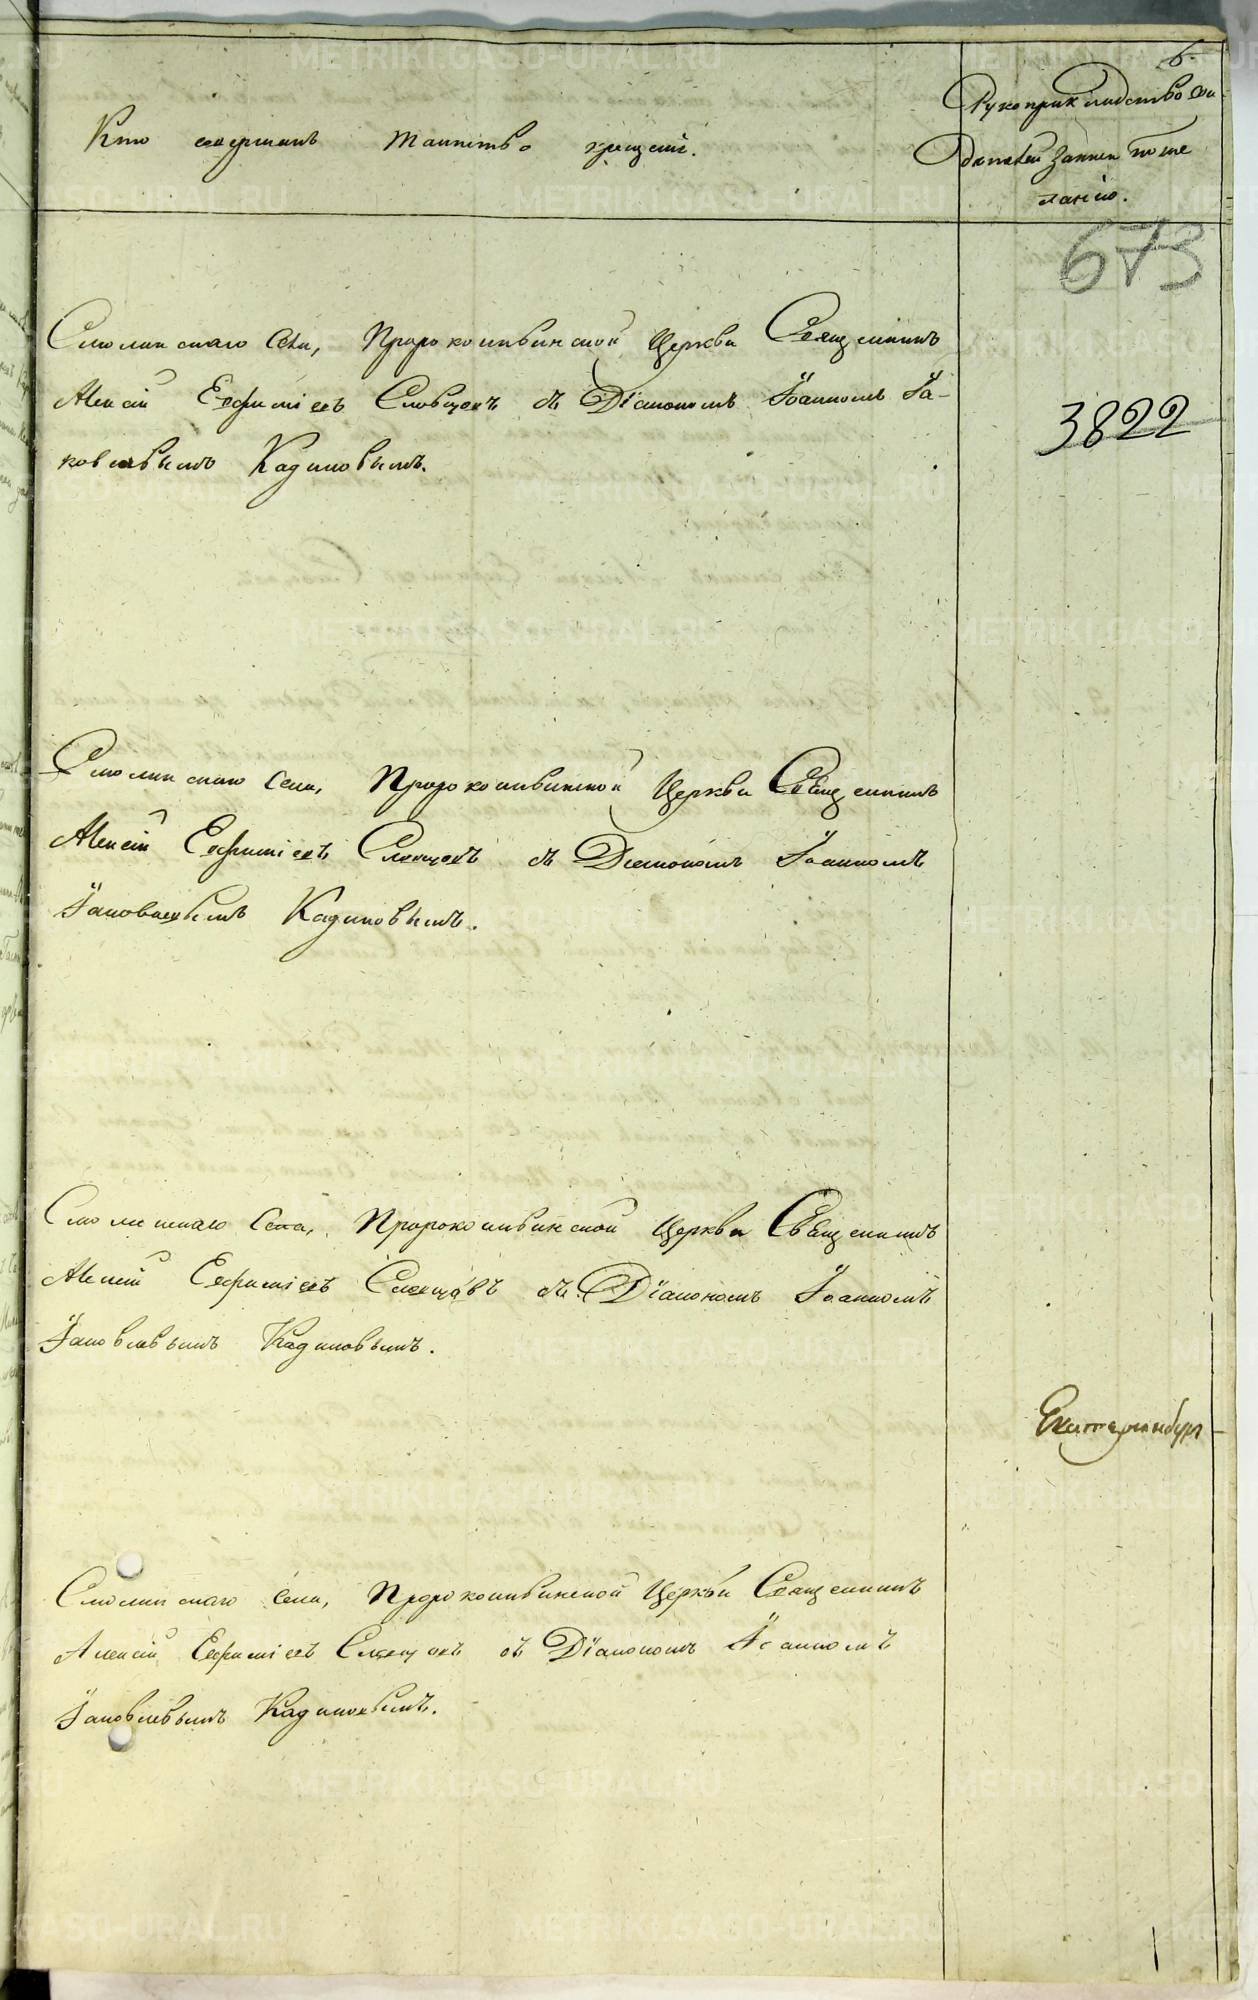 6
Кто совершалъ таинство крещенія.
Рукоприкладство сви
дѣтелей записи по же
ланію.
673
Смолинскаго Села, Пророкоильинской Церкви Священникъ
3822
Алексій Евфиміевъ Словцовъ съ Діакономъ Іоанномъ Іа-
ковлевымъ Кадиковымъ.
Смолинскаго Села, Пророкоильинской Церкви Священникъ
Алексій Евфиміевъ Словцовъ съ Діакономъ Іоанномъ
Іаковлевымъ Кадиковымъ.
Смолинскаго Села, Пророкоильинской Церкви Священникъ
Алексій Евфиміевъ Словцовъ съ Діакономъ Іоанномъ
Іаковлевымъ Кадиковымъ.
Екатеринбург
Смолинскаго Села, Пророкоильинской Церкви Священникъ
Алексій Евфиміевъ Словцовъ съ Діакономъ Іоанномъ
Іаковлевымъ Кадиковымъ.
METRIKI.GASO-URAL.RU